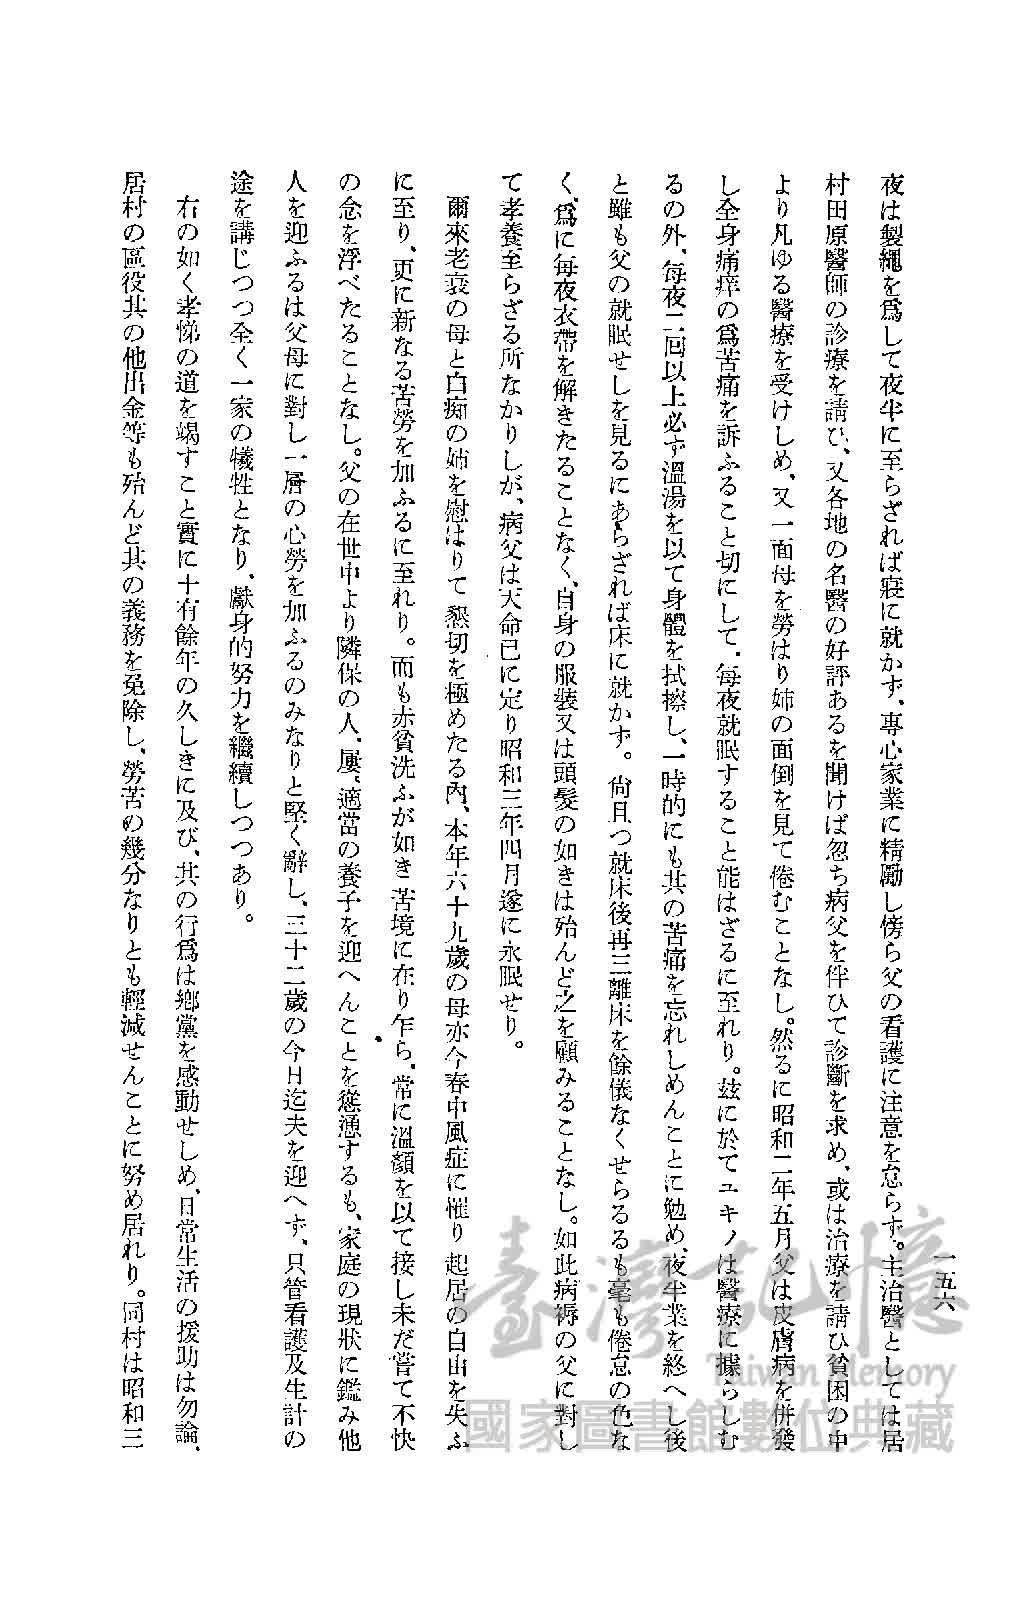 一五六
夜は製繩を爲して夜半に至らざれば寢に就かず、專心家業に精勵し傍ら父の看護に注意を怠らず。主治醫としては居
村田原醫師の診療を請ひ、又各地の名醫の好評あるを聞けば忽ち病父を伴ひて診斷を求め、或は治療を請ひ貧困の中
より凡ゆる醫療を受けしめ、又一面母を勞はり姉の面倒を見て倦むことなし。然るに昭和二年五月父は皮膚病を併發
し全身痛痒の爲苦痛を訴ふること切にして、每夜就眠すること能はざるに至れり。玆に於てユキノは醫療に據らしむ
るの外、每夜二回以上必ず溫湯を以て身體を拭擦し、一時的にも其の苦痛を忘れしめんことに勉め、夜半業を終へし後
と雖も父の就眠せしを見るにあらざれば床に就かず。尙且つ就床後再三離床を餘儀なくせらるるも毫も倦怠の色な
く、爲に每夜衣帶を解きたることなく、自身の服裝又は頭髮の如きは殆んど之を顧みることなし。如此病褥の父に對し
て孝養至らざる所なかりしが、病父は天命已に定り昭和三年四月遂に永眠せり。
爾來老衰の母と白痴の姉を慰はりて懇切を極めたる內、本年六十九歲の母亦今春中風症に罹り起居の自由を失ふ
に至り、更に新なる苦勞を加ふるに至れり。而も赤貧洗ふが如き苦境に在り乍ら、常に溫顏を以て接し未だ嘗て不快
の念を浮べたることなし。父の在世中より隣保の人、屢々適當の養子を迎へんことを慫慂するも、家庭の現狀に鑑み他
人を迎ふるは父母に對し一層の心勞を加ふるのみなりと堅く辭し、三十二歲の今日迄夫を迎へず、只管看護及生計の
途を講じつつ全く一家の犧牲となり、獻身的努力を繼續しつつあり。
右の如く孝悌の道を竭すこと實に十有餘年の久しきに及び、其の行爲は鄕黨を感動せしめ、日常生活の援助は勿論、
居村の區役其の他出金等も殆んど其の義務を免除し、勞苦の幾分なりとも輕減せんことに努め居れり。同村は昭和三
臺灣記憶
Taiwan Memory
國家圖書館數位典藏